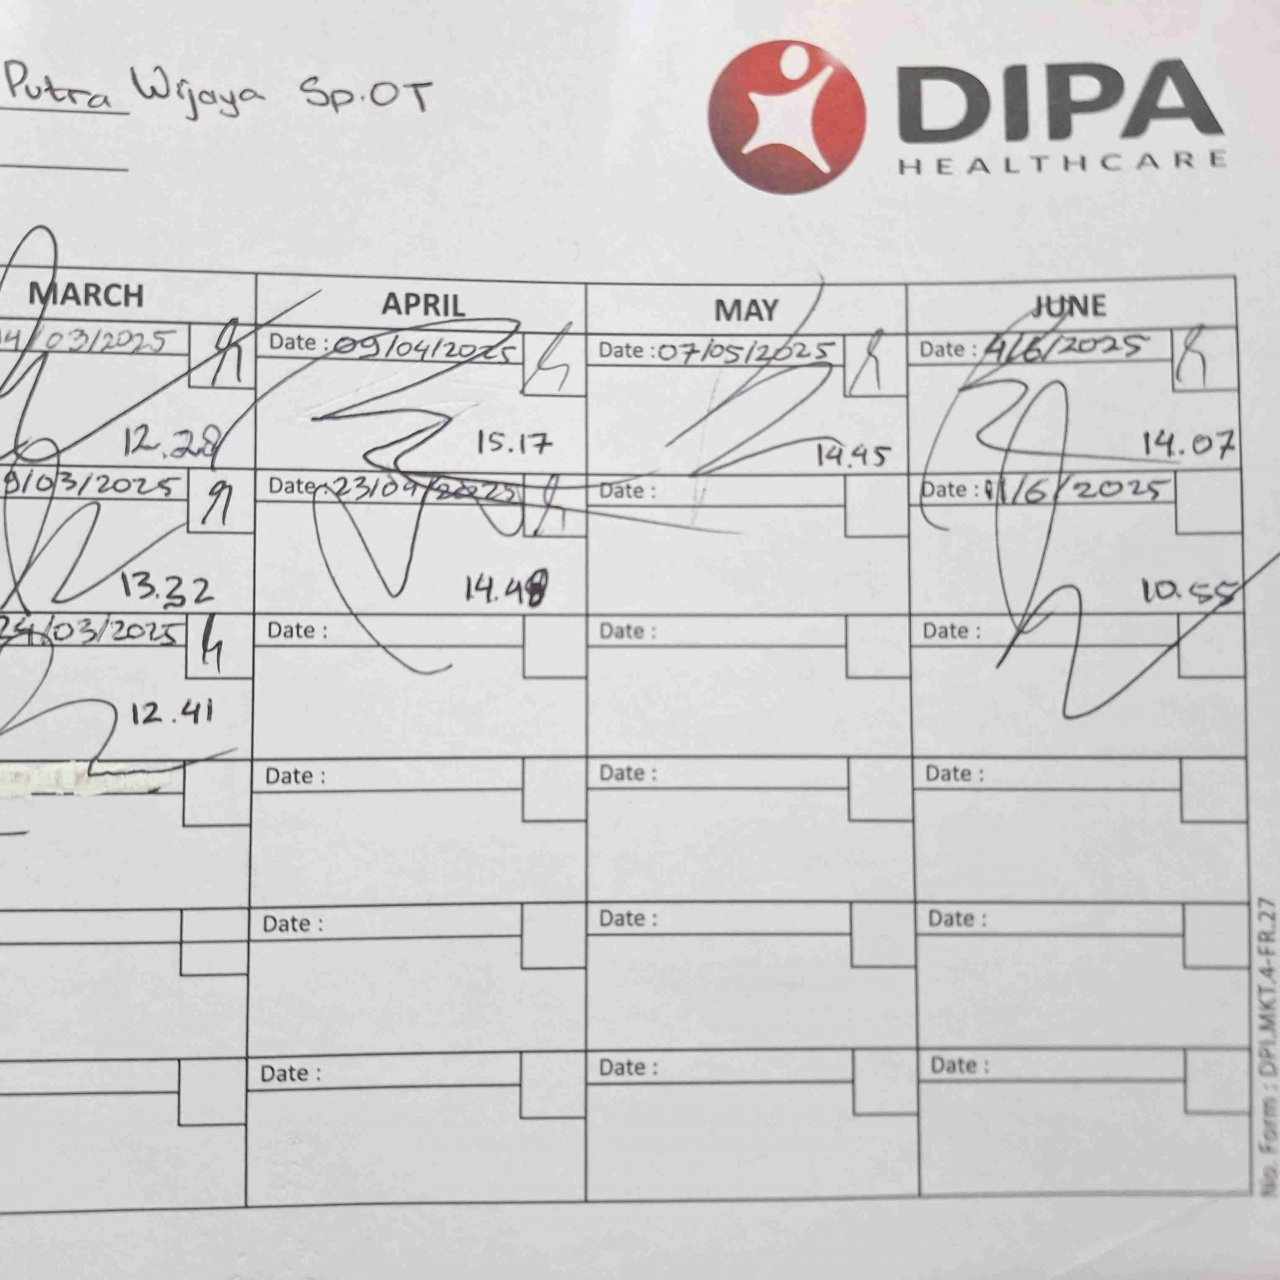 Putra Wijaya Sp.OT
DIPA
HEALTHCARE
MARCH APRIL MAY JUNE
/03/2025 Date : 09/04/2025 Date : 07/05/2025 Date : 4/6/2025
12.28 15.17 14.45 14.07
/03/2025 Date : 23/04/2025 Date : Date : 11/6/2025
13.32 14.48 10.55
24/03/2025 Date : Date : Date :
12.41
Date : Date : Date :
Date : Date : Date :
Date : Date : Date :
No. Form : DPI.MKT.4-FR.27